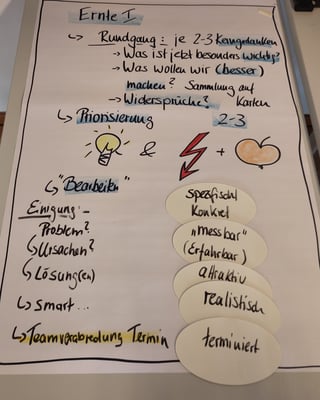 Ernte I
↳ Rundgang: je 2-3 Kerngedanken
→ Was ist jetzt besonders wichtig?
→ Was wollen wir (besser)
machen? Sammlung auf
→ Widersprüche? Karten
↳ Priorisierung 2-3
& +
↳ "Bearbeiten"
Einigung:-
Problem?
↳ Ursachen?
↳ Lösung(en)
↳ smart...
↳ Teamverabredung Termin
spezifisch/
konkret
"messbar"
(Erfahrbar)
attraktiv
realistisch
terminiert